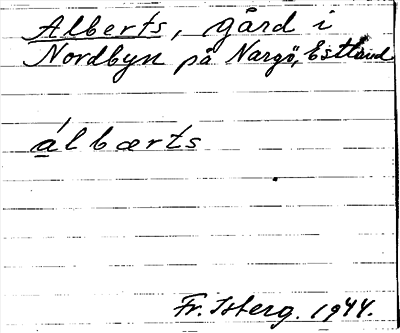 Alberts, gård i
Nordbyn på Nargö, Estland
álbærts
Fr. Isberg. 1944.